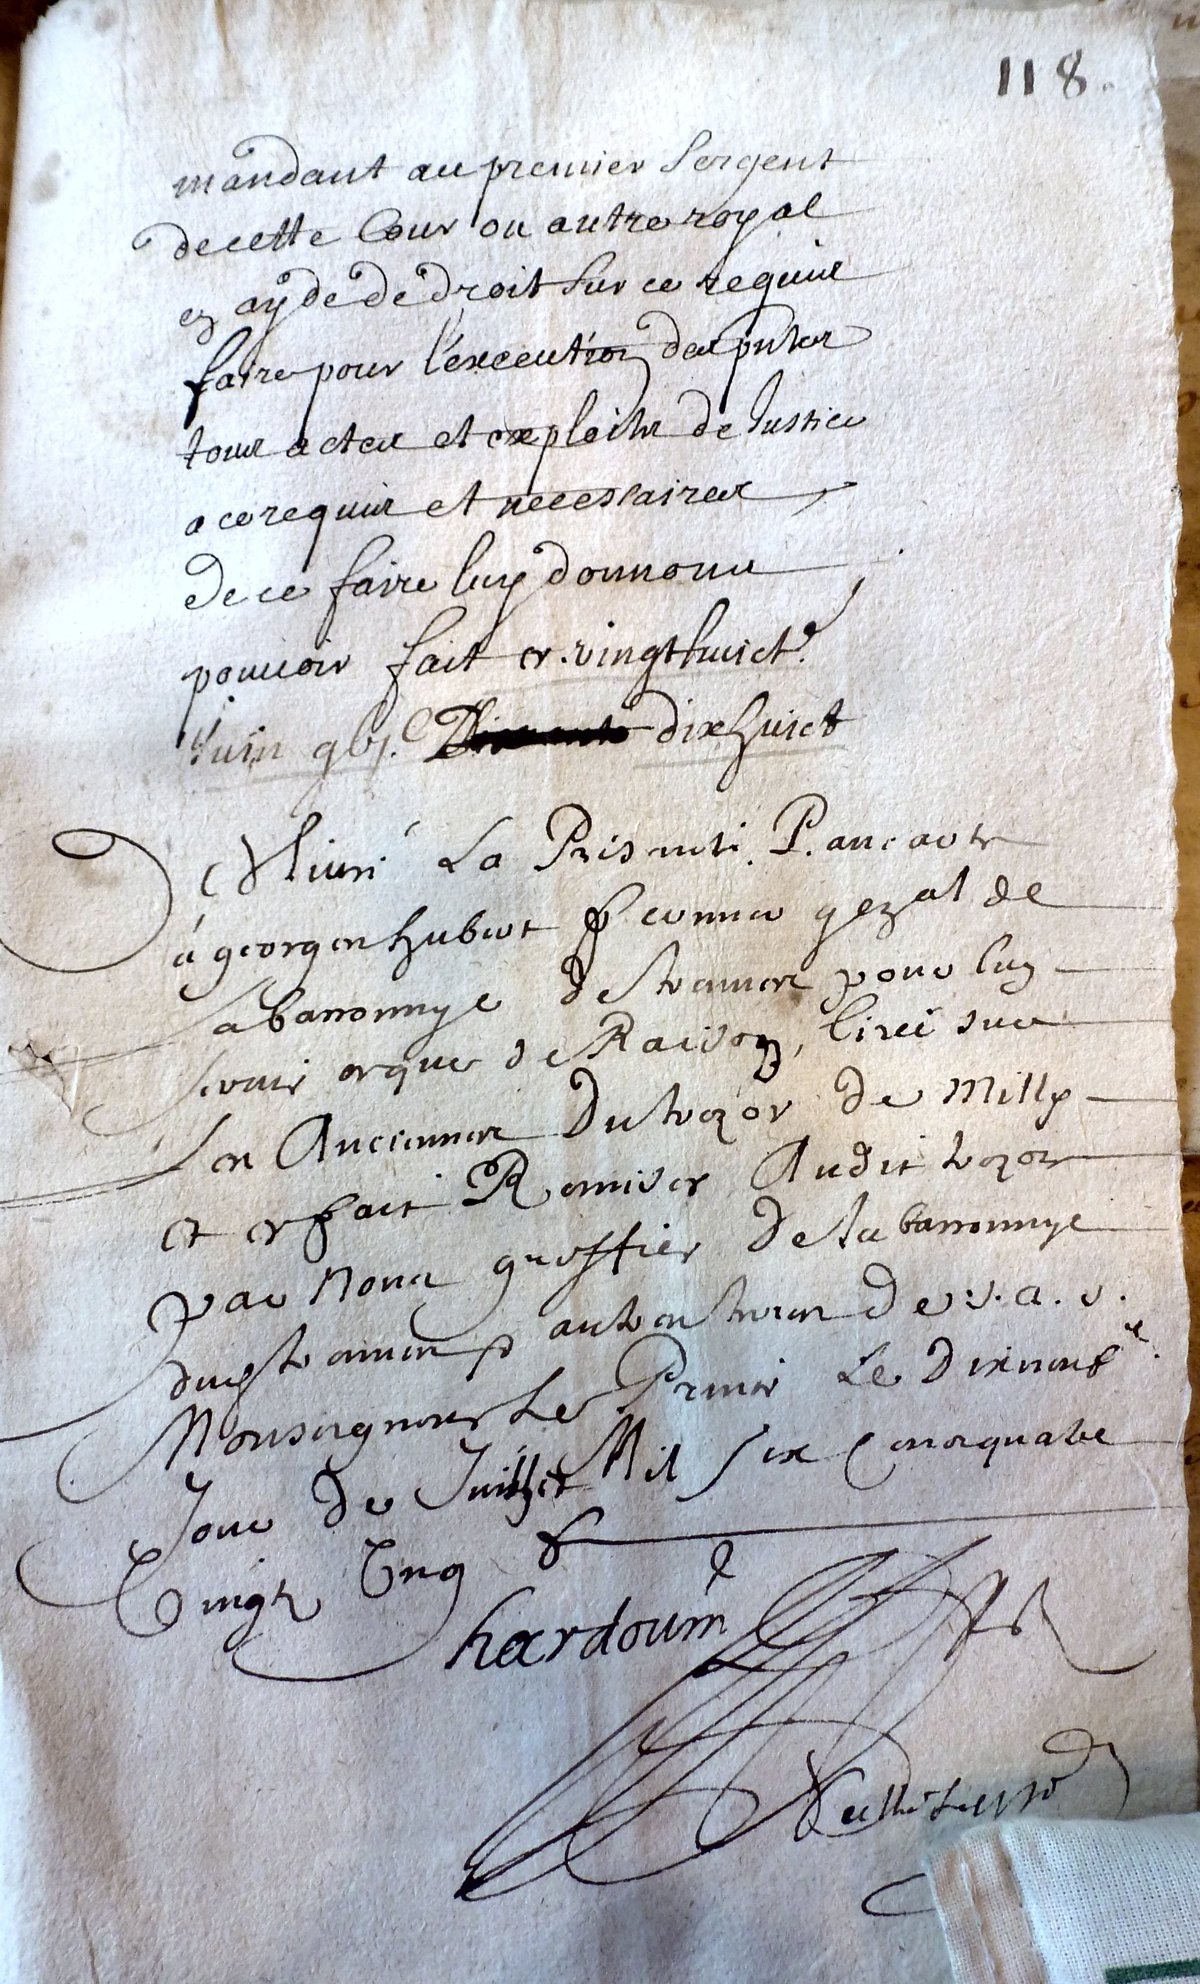 118.
mandant au premier sergent
de cette Cour ou autre royal
en ayde de droit sur ce requis
faire pour l'execution des pntes
tous actes et exploits de Justice
a ce requis et necessaires
de ce faire luy donnons
pouvoir fait ce vingthuicte
Juin dixhuict
Deliuré La Presente Pancarte
a georges hubert gegal de
la baronnye de pour luy
seruir que de Raison, tiré sur
les Anciennes Du trezor de Milly
et ce fait Remises Audit trezor
par Nous greffier De la baronnye
dud au de s. a. s.
Monseigneur Le Prince Le Dixneufe
Jour de Juillet Mil six Centz quatre
Vingtz Cinq
hardouin